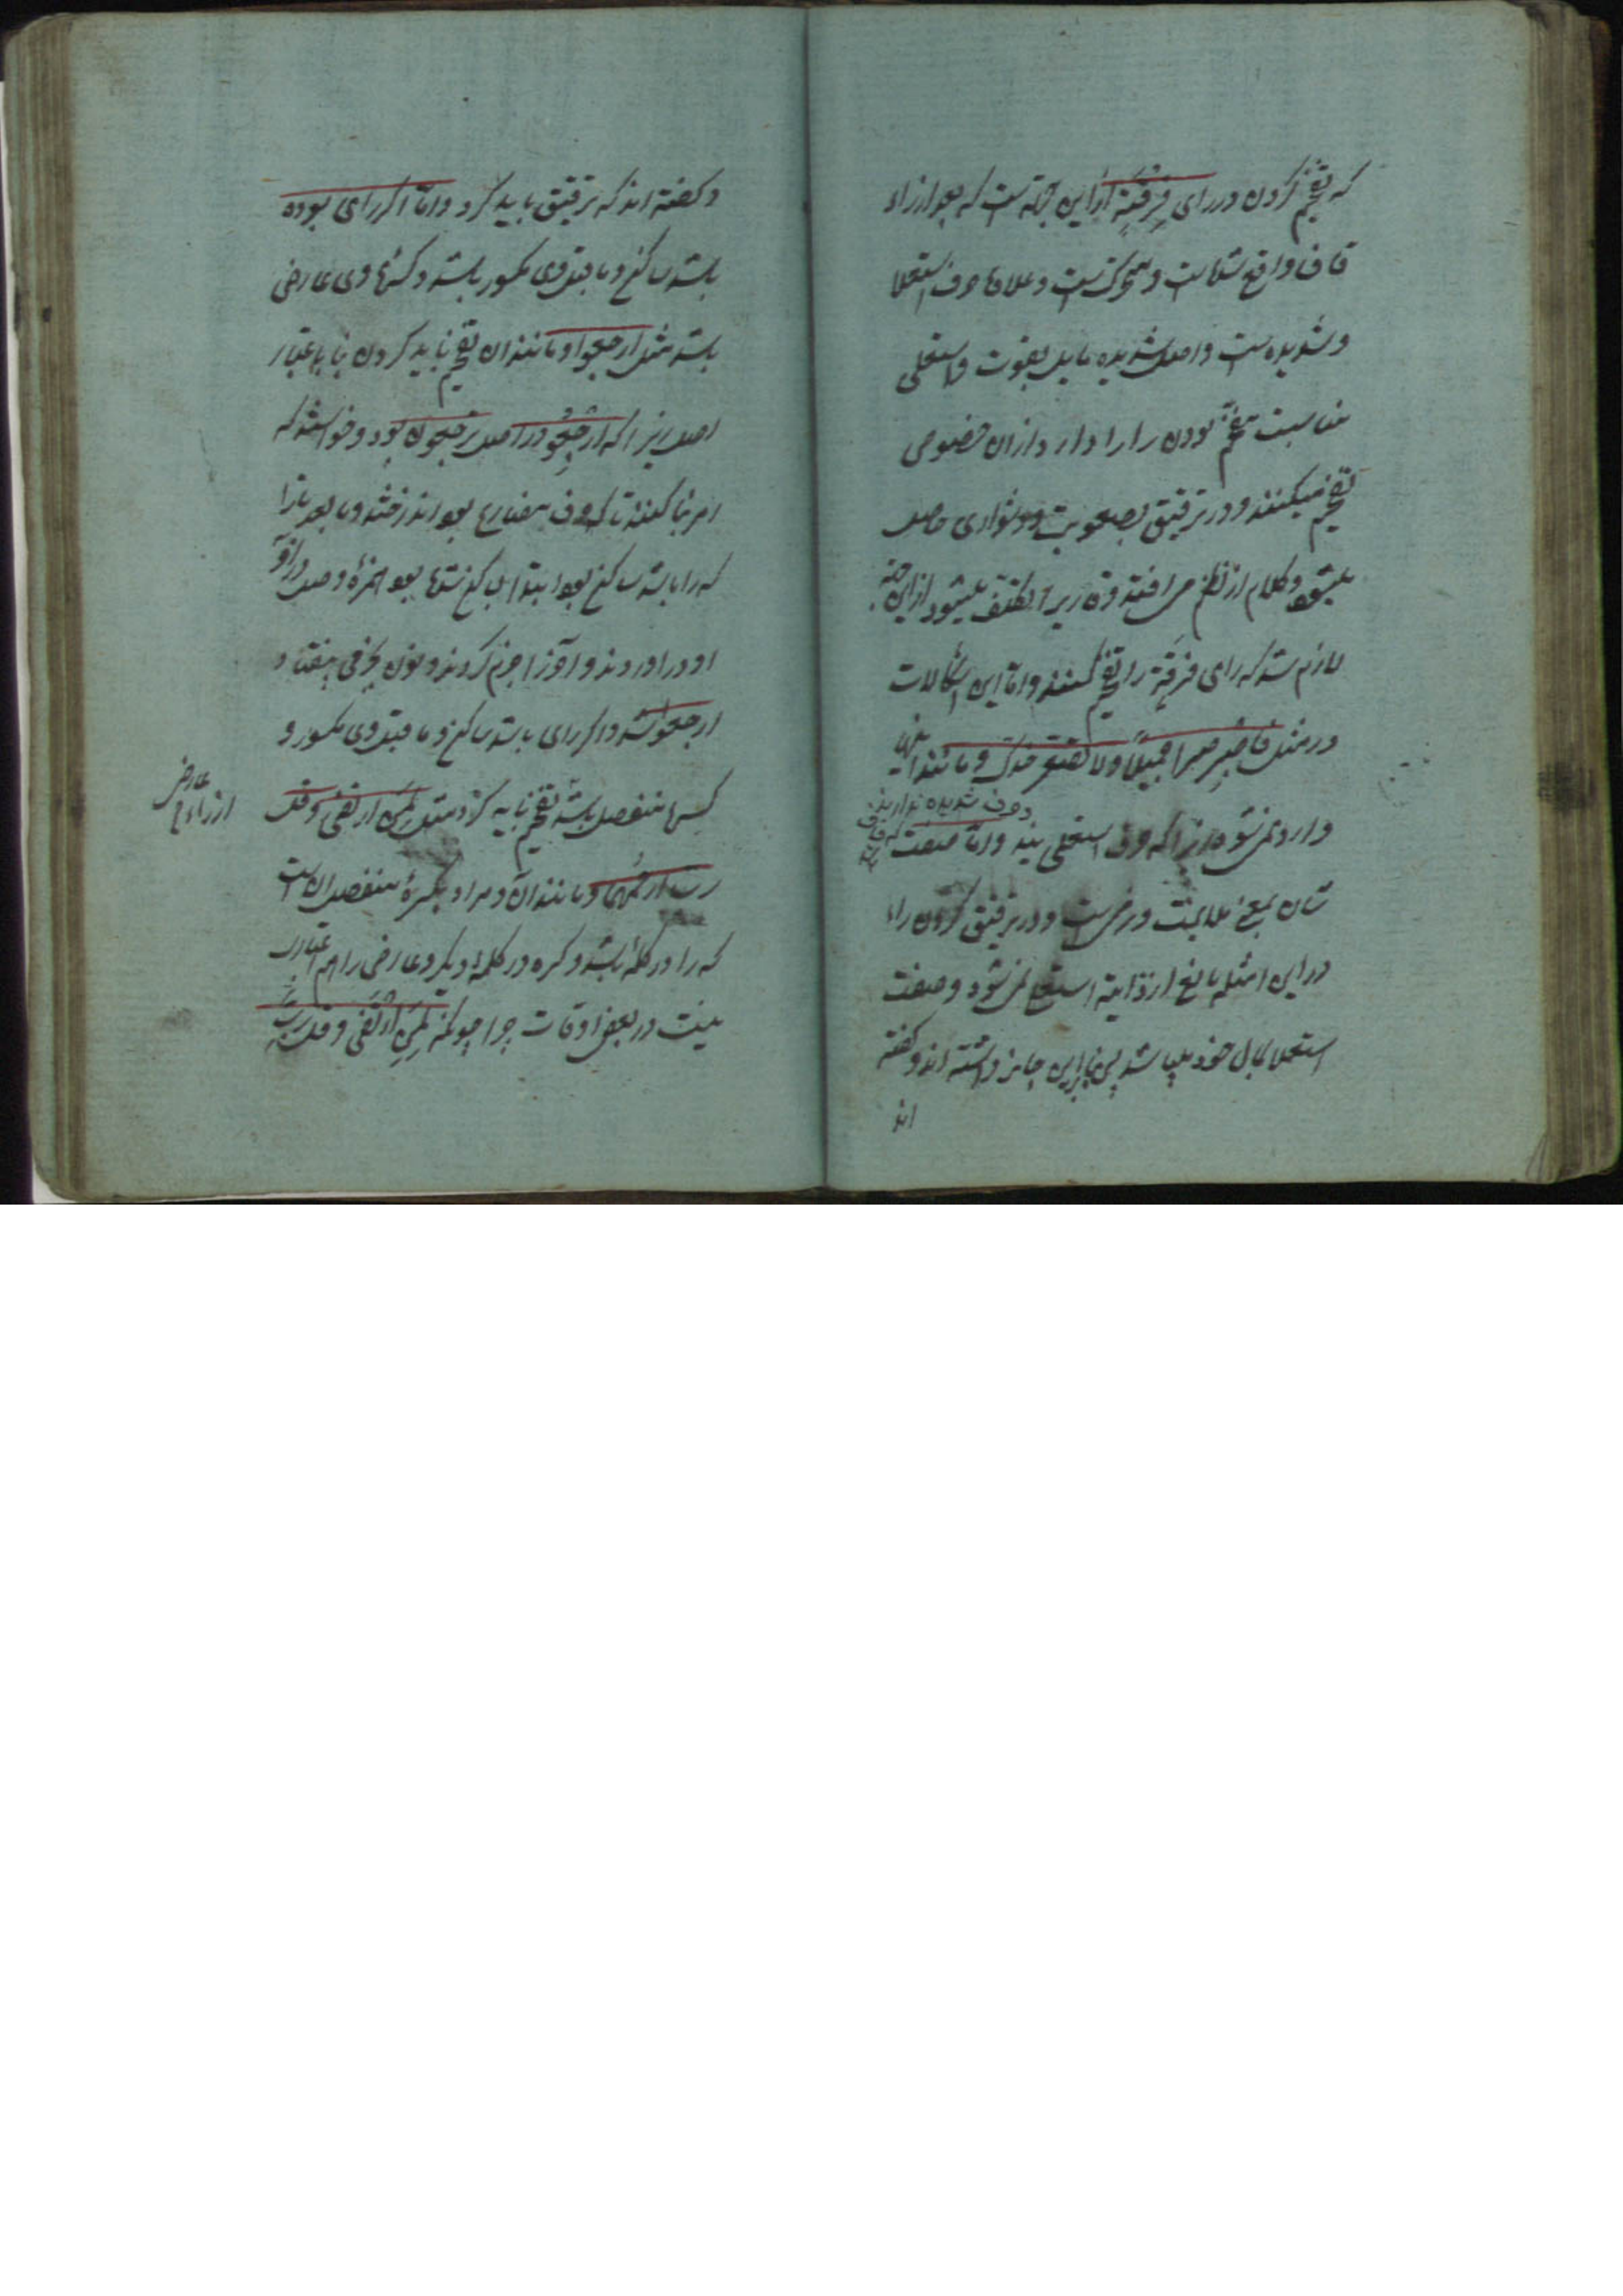 که تفخیم کردن در رای فِرْقَةٍ از این جهة است که بعد از راء
قاف واقع شده است و متحرکست و علاقا حرف استعلا
و شدیده است و اصل شدیده مایل بقوت و استعلی
مناسبت تفخیم بودن را را دارد از ان خصوص
تفخیم میکنند و در ترقیق بصعوبت و دشواری حاصل
میشود و کلام از نظم می افتد و قرا را تکلف میشود از این جهة
لازم شد که رای فرقة را تفخیم کنند و اما این اشکالات
در مثل فاصبر صبرا جمیلا ولا تصعر خدک و مانند اینها
وارد نمی شود زیرا که حرف استعلی بیند و اما صفت
و حرف شدیده ندارند
شان بمعنی ملایمت و نرمی است و در ترقیق کردن راء
در این امثله مانع از ذاتیة استعلا نمی شود و صفت
استعلا بحال خود میباشد پس بنابراین جایز داشته اند و گفته
اند
و گفته اند که ترقیق باید کرد و اما اگر رای بوده
باشد ساکن و ماقبل وی مکسور باشد و کسرهٔ وی عارضی
باشد مثل ارجعوا و مانند ان تفخیم باید کردن بنا باعتبار
اصل زیرا که ارجِعُو در اصل ترجعون بود و خواستند که
امر بنا کنند تا که حرف مضارع بود انداختند و مابعد تا را
که را باشد ساکن بود ابتدا بساکن نشاید بود همزهٔ وصل در اول
او در اوردند و اخر را جزم کردند و نون بجزمی بیفتاد
ارجعوا شد و اگر رای باشد ساکن و ماقبل وی مکسور و
کسرها منفصل باشد تفخیم باید کرد مثل لِمَنِ ارتضی و قل
عارض از راء
رب ارحمهما و مانند آن و مراد بکسرهٔ منفصل ان است
که را در کلمهٔ باشد و کسره در کلمهٔ دیگر و عارضی را هم اعتبار
نیست در بعض اوقات چرا چونکه لِمَنِ ارْتَضَی و قل رب